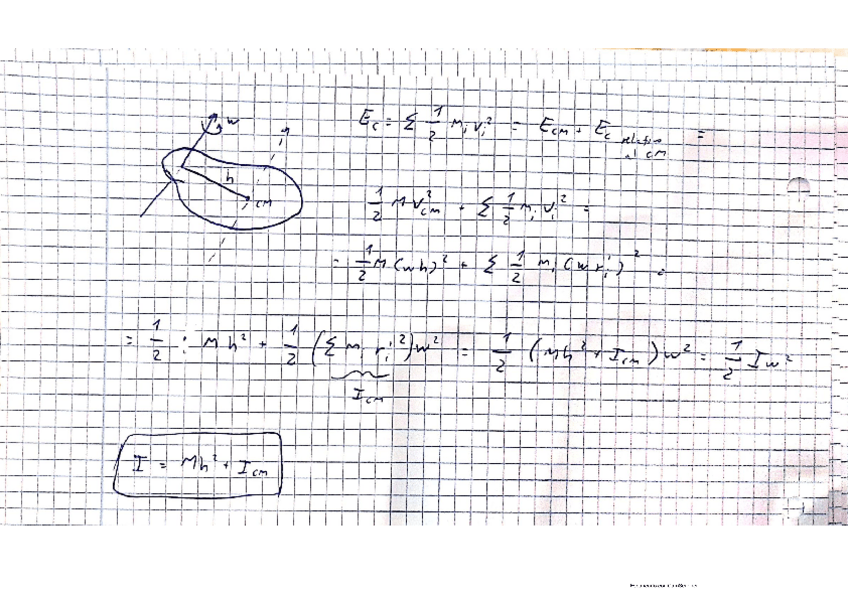 w
h
cm
E_c = Σ 1/2 m_i v_i² = E_cm + E_c relativa al cm =
1/2 M v_cm² + Σ 1/2 m_i v_i'² =
= 1/2 M (wh)² + Σ 1/2 m_i (w r_i')² =
= 1/2 M h² + 1/2 (Σ m_i r_i'²) w² = 1/2 (Mh² + I_cm) w² = 1/2 I w²
I_cm
I = Mh² + I_cm